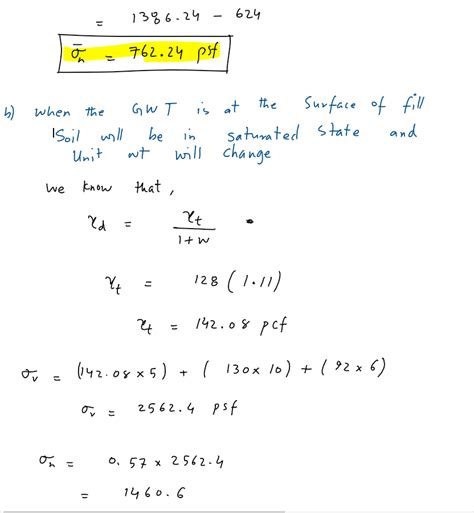 = 1386.24 - 624
σ̄h = 762.24 psf
b) when the GWT is at the surface of fill
Soil will be in saturated state and
Unit wt will change
we know that,
γd = γt / (1+w)
γt = 128 (1.11)
γt = 142.08 pcf
σv = (142.08 x 5) + ( 130 x 10) + ( 92 x 6)
σv = 2562.4 psf
σh = 0.57 x 2562.4
= 1460.6